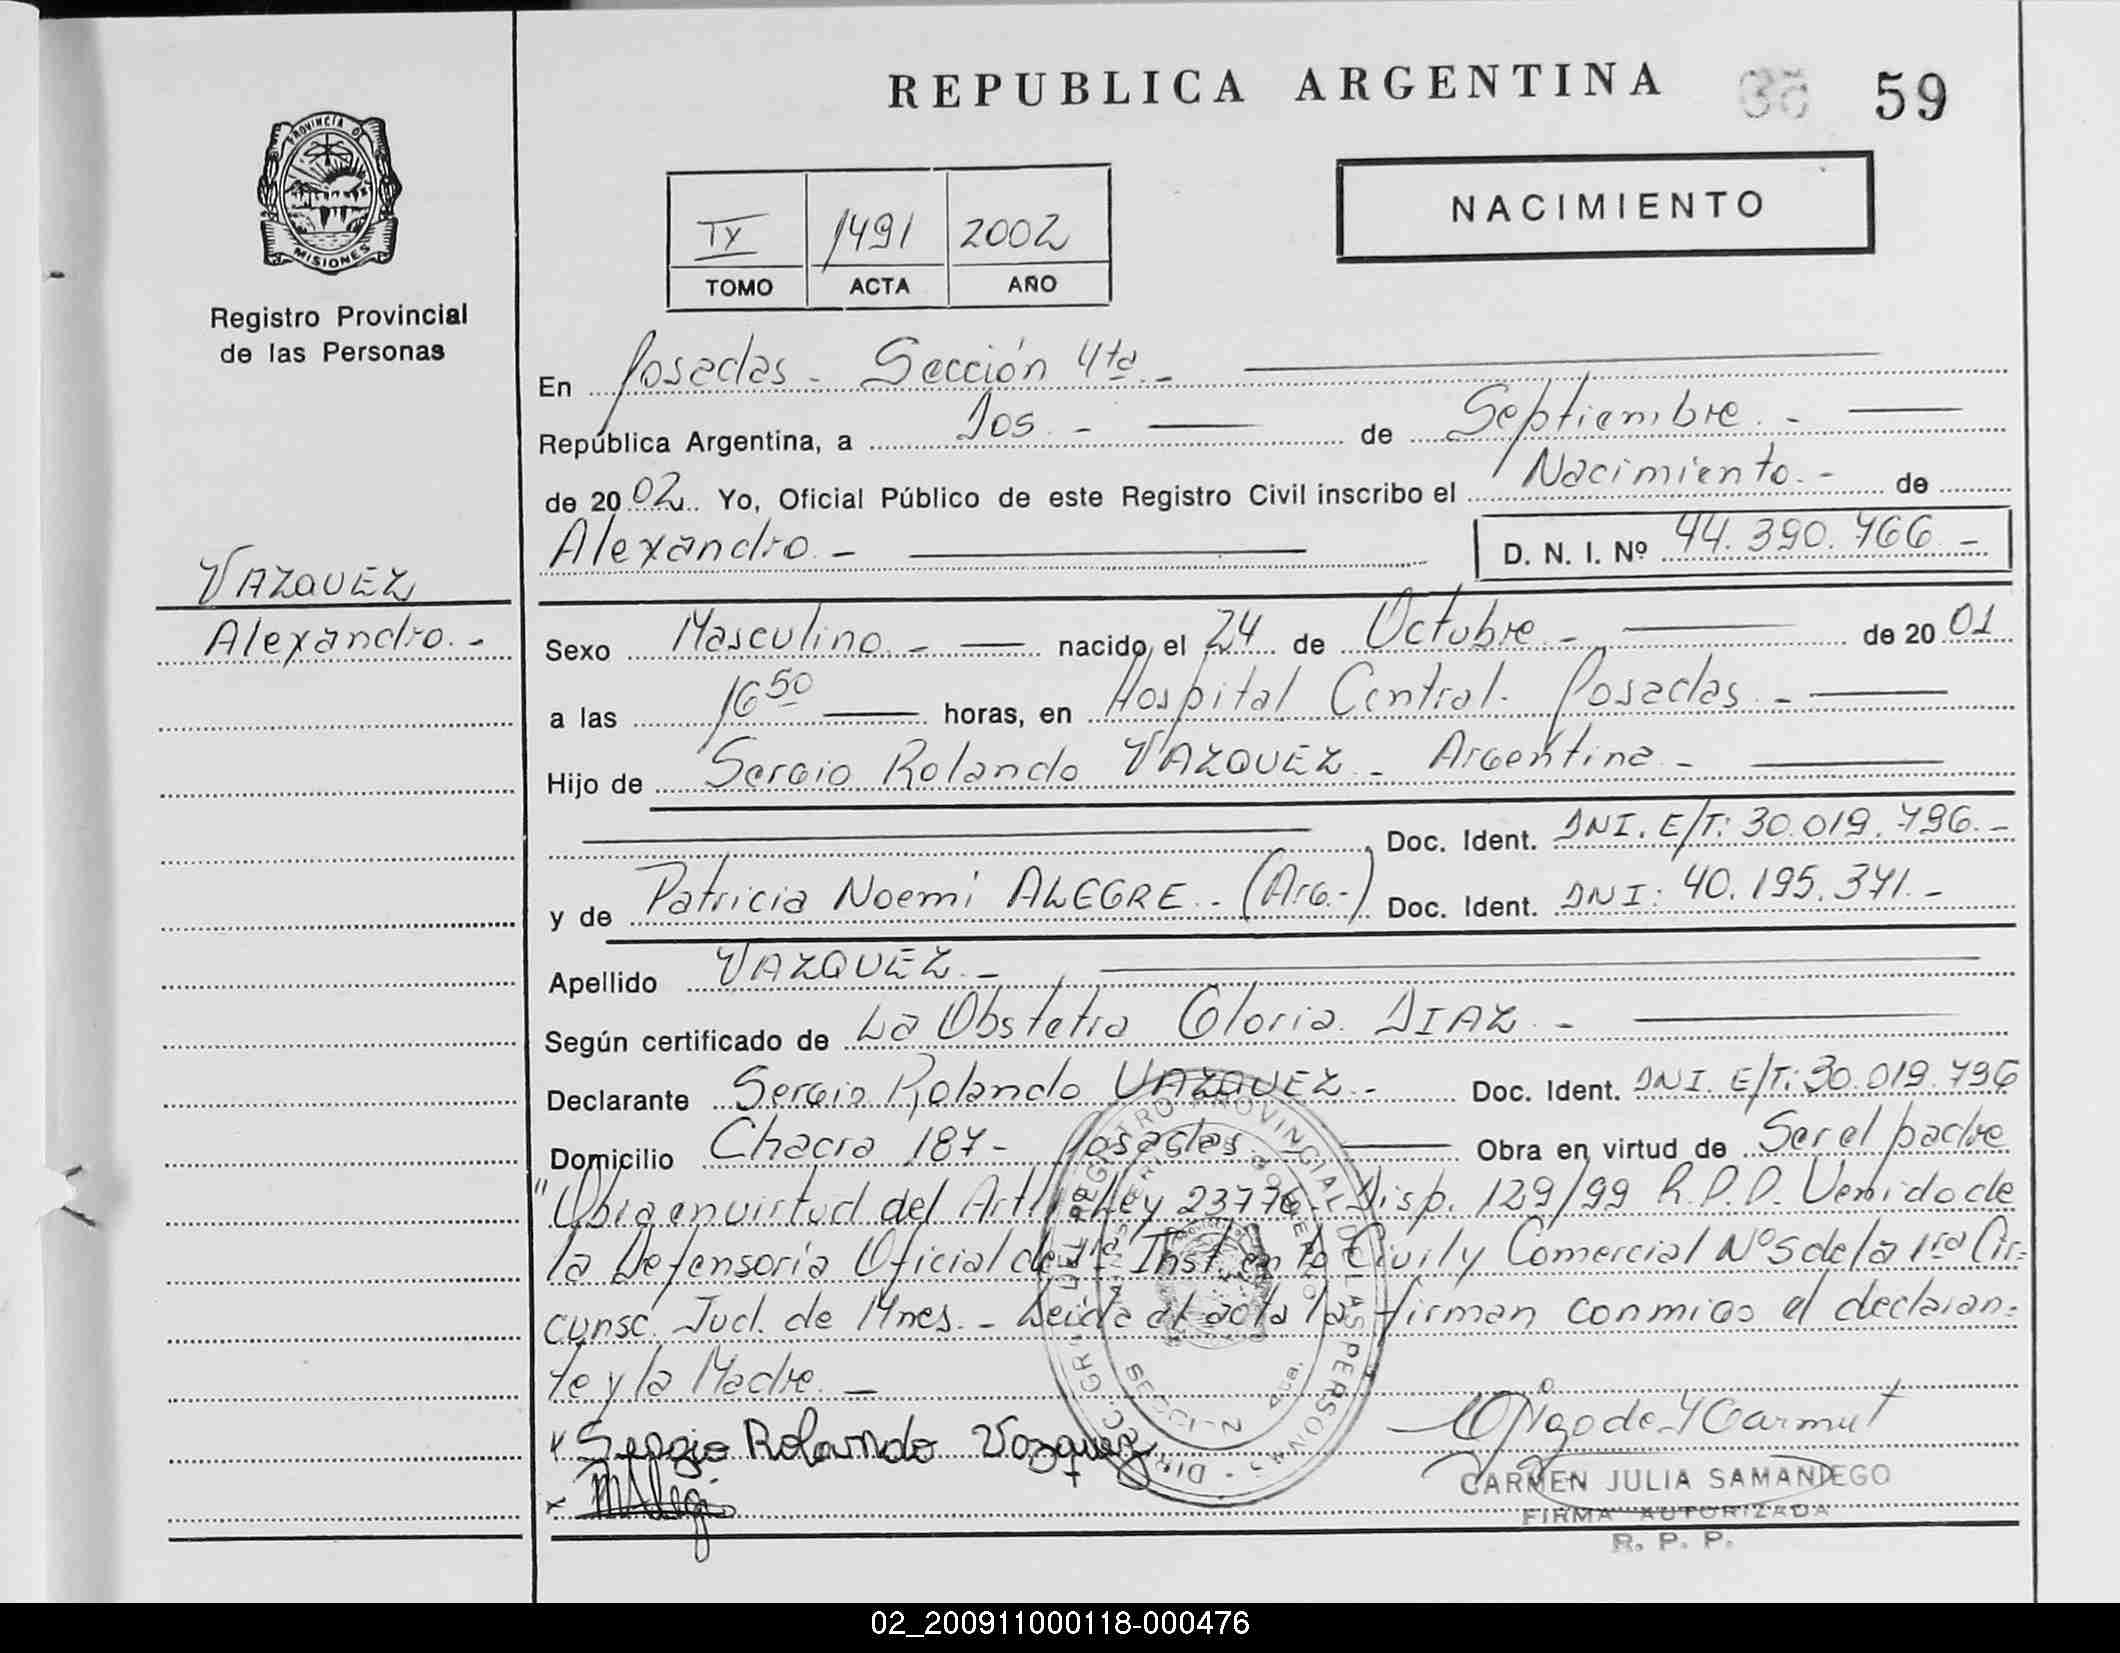 REPUBLICA ARGENTINA
35 59
PROVINCIA DE
MISIONES
Registro Provincial
de las Personas
IV 1491 2002
TOMO ACTA AÑO
NACIMIENTO
En Posadas - Sección 4ta -
República Argentina, a dos - de Septiembre -
de 2002 Yo, Oficial Público de este Registro Civil inscribo el Nacimiento - de
Alexandro - D. N. I. Nº 44.390.766 -
VAZQUEZ
Alexandro -
Sexo Masculino - nacido el 24 de Octubre - de 2001
a las 16 50 horas, en Hospital Central - Posadas -
Hijo de Sergio Rolando VAZQUEZ - Argentina -
Doc. Ident. DNI. E/T: 30.019.796 -
y de Patricia Noemí ALEGRE - (Arg.-) Doc. Ident. DNI: 40.195.371 -
Apellido VAZQUEZ -
Según certificado de La Obstetra Gloria DIAZ -
Declarante Sergio Rolando VAZQUEZ - Doc. Ident. DNI. E/T: 30.019.796
Domicilio Chacra 187 - Posadas Obra en virtud de Ser el padre
"Obra en virtud del Art 11 Ley 23776 - Disp. 129/99 R.P.P. Venido de
la Defensoría Oficial de 1ra Inst. en lo Civil y Comercial Nº 5 de la 1ra Cir=
cunsc. Jud. de Mnes. - Leída el acta la firman conmigo el declaran=
te y la Madre. -
x Sergio Rolando Vazquez
x
CARMEN JULIA SAMANIEGO
FIRMA AUTORIZADA
R. P. P.
02_200911000118-000476